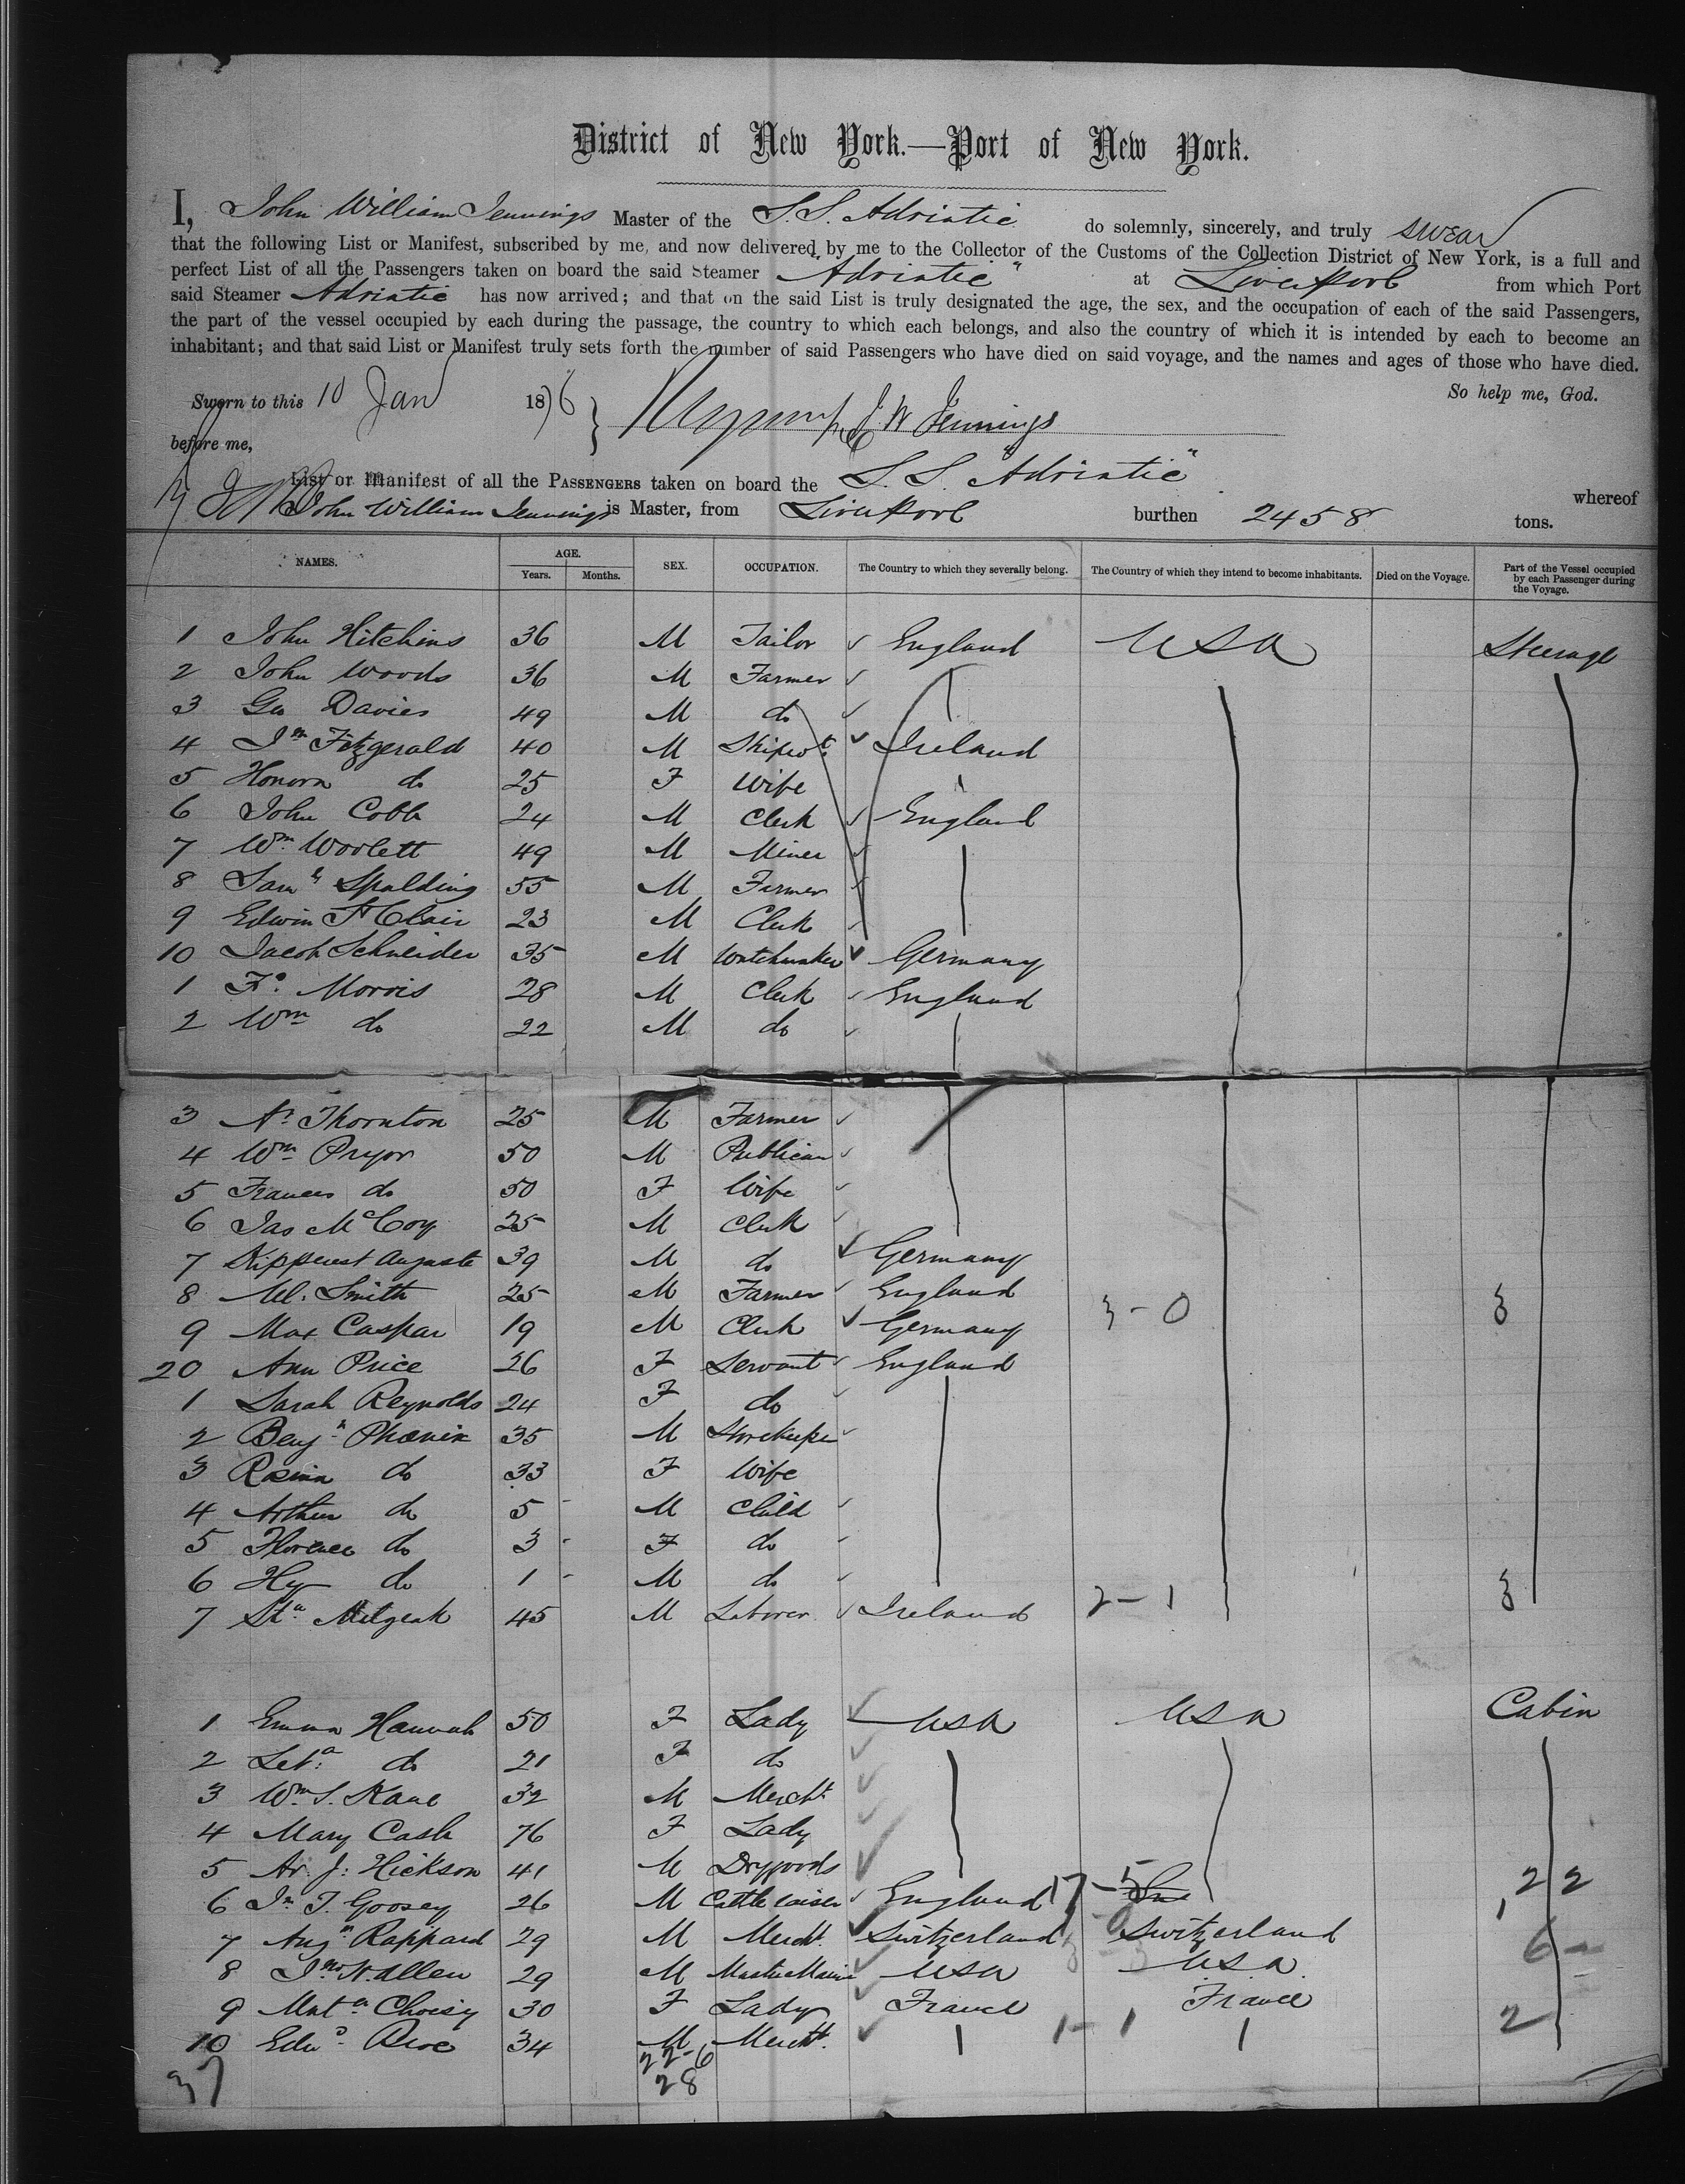 District of New York.—Port of New York.
I, John William Jennings Master of the S.S. Adriatic do solemnly, sincerely, and truly swear
that the following List or Manifest, subscribed by me, and now delivered by me to the Collector of the Customs of the Collection District of New York, is a full and
perfect List of all the Passengers taken on board the said Steamer "Adriatic" at Liverpool from which Port
said Steamer Adriatic has now arrived; and that on the said List is truly designated the age, the sex, and the occupation of each of the said Passengers,
the part of the vessel occupied by each during the passage, the country to which each belongs, and also the country of which it is intended by each to become an
inhabitant; and that said List or Manifest truly sets forth the number of said Passengers who have died on said voyage, and the names and ages of those who have died.
So help me, God.
Sworn to this 10 Jan 1876 } J W Jennings
before me,
List or Manifest of all the PASSENGERS taken on board the S. S. "Adriatic" whereof
John William Jennings is Master, from Liverpool burthen 2458 tons.
NAMES. AGE. Years. Months. SEX. OCCUPATION. The Country to which they severally belong. The Country of which they intend to become inhabitants. Died on the Voyage. Part of the Vessel occupied by each Passenger during the Voyage.
1 John Hitchins 36 M Tailor England USA Steerage
2 John Woods 36 M Farmer
3 Geo Davies 49 M do
4 Jn Fitzgerald 40 M Shipwt. Ireland
5 Honora do 25 F Wife
6 John Cobb 24 M Clerk England
7 Wm Woolett 49 M Miner
8 Saml Spalding 55 M Farmer
9 Edwin St Clair 23 M Clerk
10 Jacob Schneider 35 M Watchmaker Germany
1 Fo. Morris 28 M Clerk England
2 Wm do 22 M do
3 Ar Thornton 25 M Farmer
4 Wm Pryor 50 M Publican
5 Frances do 50 F Wife
6 Jas McCoy 25 M Clerk
7 Auguste 39 M do Germany
8 Ml. Smith 25 M Farmer England
9 Max Caspar 19 M Clerk Germany 3-0 3
20 Ann Price 26 F Servant England
1 Sarah Reynolds 24 F do
2 Benjn Phœnix 35 M Storekeeper
3 Rosina do 33 F Wife
4 Arthur do 5 M Child
5 Florence do 3 F do
6 Hy do 1 M do
7 45 M Laborer Ireland 2-1 3
1 Emma Hannah 50 F Lady USA USA Cabin
2 Leta. do 21 F do
3 Wm. S. Kane 32 M Mercht
4 Mary Cash 76 F Lady
5 Ar. J. Hickson 41 M Drygoods
6 Jn. T. Goosey 26 M Cattle raiser England 17-5 22
7 Augn. Rappard 29 M Mercht. Switzerland Switzerland 6
8 Jno N. Allen 29 M Master Marine USA USA
9 Choisy 30 F Lady France France
10 Edwd. Roe 34 M Mercht. 1-1 2
22-6
28
37